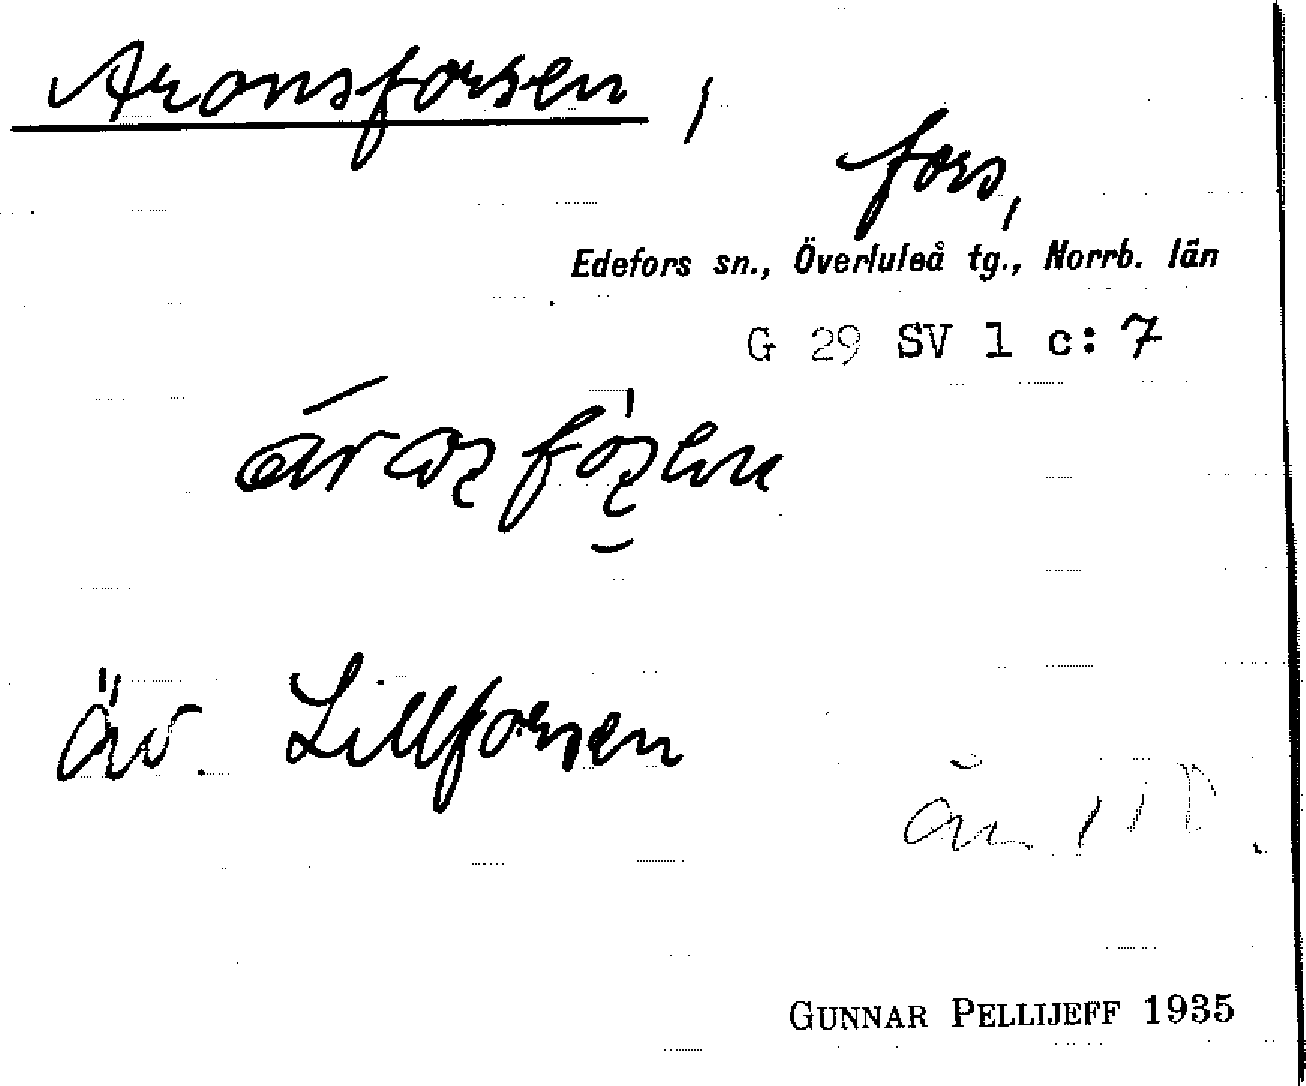 Aronsforsen,
fors,
Edefors sn., Överluleå tg., Norrb. län
G 29 SV 1 c: 7
äv. Lillforsen
GUNNAR PELLIJEFF 1935